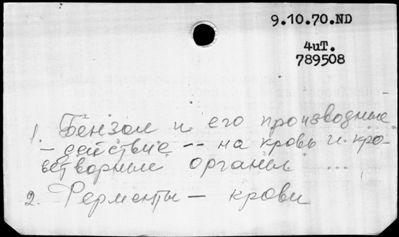 9.10.70.ND
4иT.
789508
1. Бензол и его производные
– действие -- на кровь и кро-
ветворные органы ...
2. Ферменты – крови